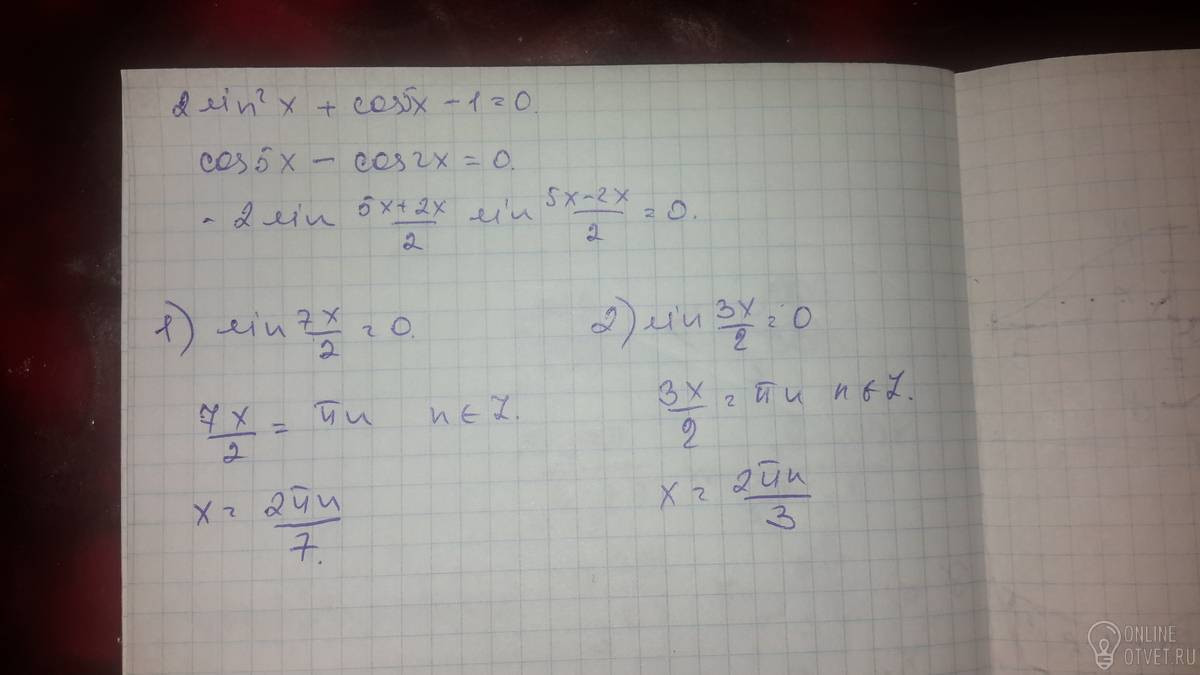 2 sin² x + cos5x - 1 = 0.
cos5x - cos2x = 0.
- 2 sin (5x+2x)/2 sin (5x-2x)/2 = 0.
1) sin 7x/2 = 0.
7x/2 = πn n ∈ Z.
x = 2πn/7.
2) sin 3x/2 = 0
3x/2 = πn n ∈ Z.
x = 2πn/3
ONLINE
OTVET.RU